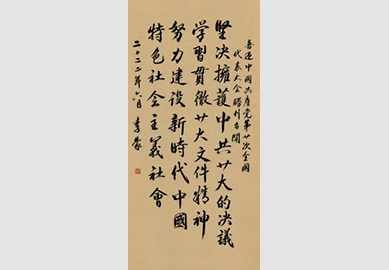 喜迎中国共产党第廿次全国
代表大会胜利召開
堅决擁護中共廿大的决議
学習貫徹廿大文件精神
努力建设新時代中國
特色社会主義社會
二〇二二年六月 李